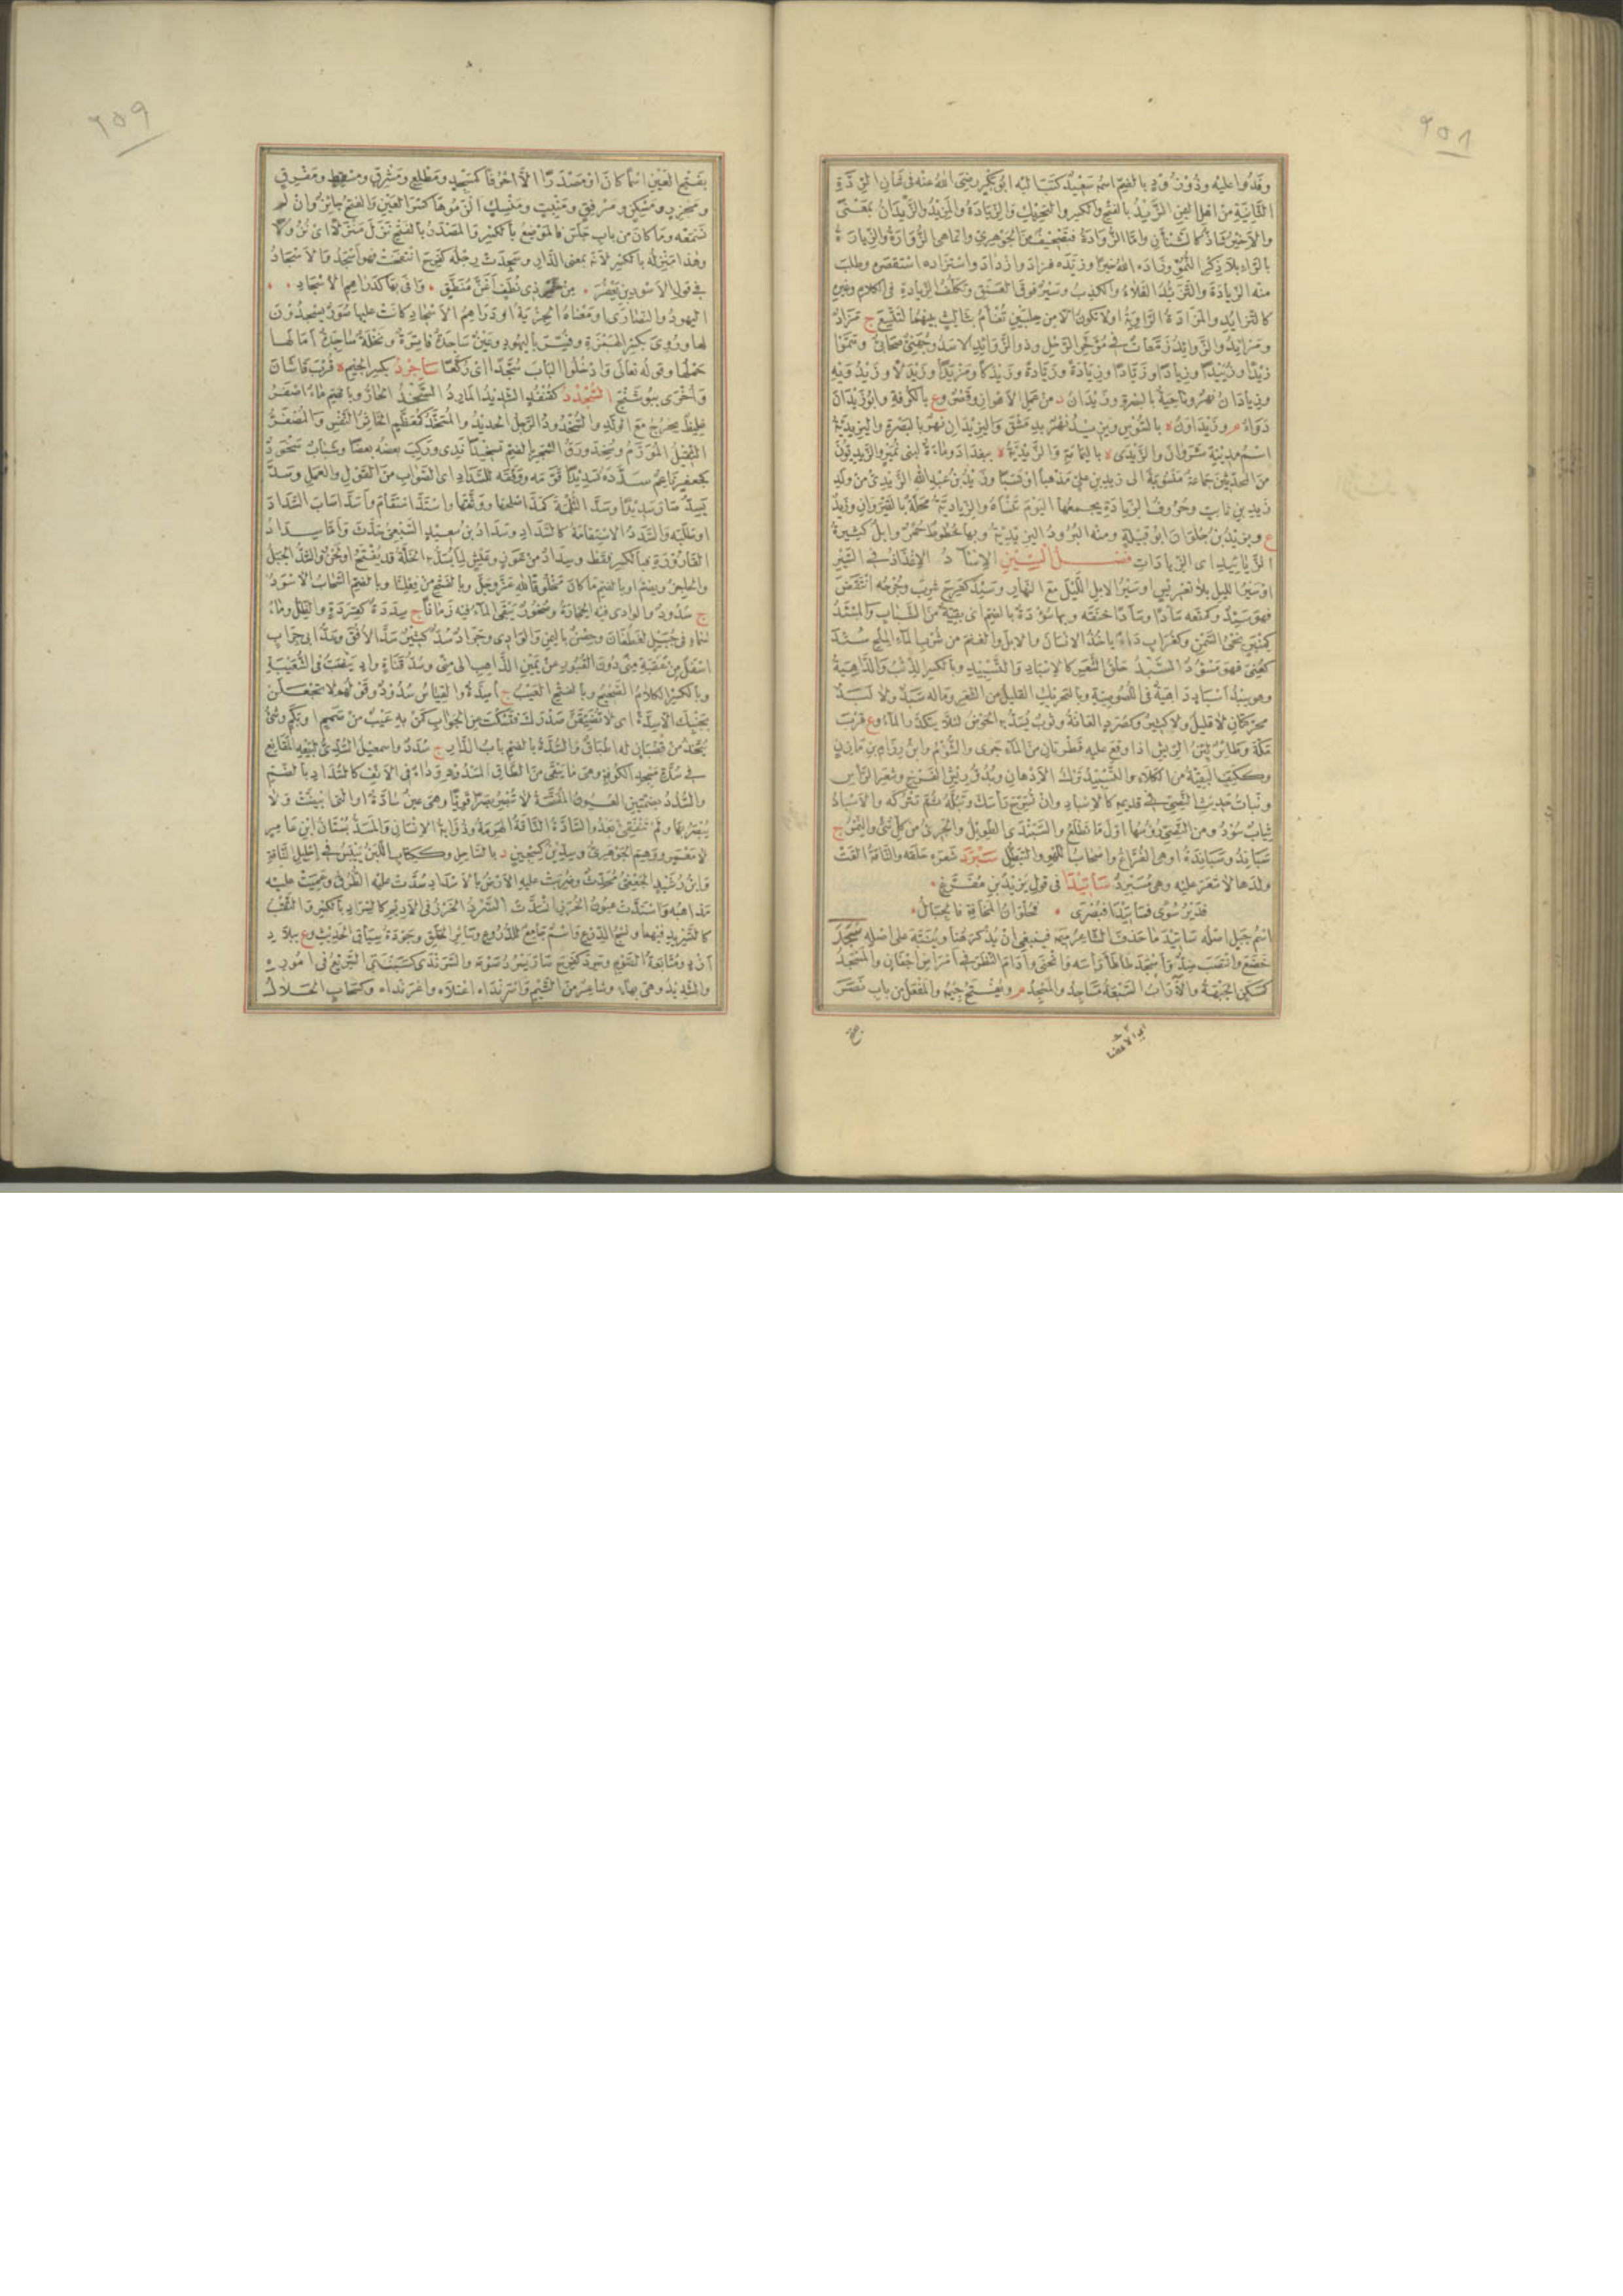 ٢٥٨
وفدوا عليه وذو زود بالضم اسمه سعيد كتب اليه ابو بكر رضى الله عنه فى شان الردة
الثانية من اهل اليمن الزيد بالفتح والكسر والتحريك والزيادة والمزيد والزيدان بمعنى
والاخير شاذ كالشنآن واما الزوادة فتصحيف من الجوهرى وانما هى الزوارة والزيارة
بالراء بلا ذكر النمو وزاده الله خيرا وزيده فزاد وازداد واستزاده استقصره وطلب
منه الزيادة والتزيد الغلاء والكذب وسير فوق العنق وتكلف الزيادة فى الكلام وغيره
كالتزايد والمزادة الراوية اولا تكون الا من جلدين تفأم بثالث بينهما لتتسع ج مزاد
ومزايد والزوائد زمعات فى مؤخر الرحل وذو الزوائد الاسد وجهنى صحابى وسموا
زيدا وزييدا وزيادا وزيادا وزيادة وزيادة وزيدكا ومزيدا وزيدلا وزيدويه
وزيادان نهر وناحية بالبصرة وزيدان د من عمل الاهواز وقصر وع بالكوفة وابو زيدان
دواء م وزيداون ة بالسوس ويزيد نهر بدمشق واليزيدان نهر بالبصرة واليزيدية
اسم مدينة شروان والزيدى ة باليمامة والزيدية ة ببغداد وماءة لبنى نمير والزيديون
من المحدثين جماعة منسوبة الى زيد بن على مذهبا او نسبا وزيد بن عبد الله الزيدى من ولد
زيد بن ثابت وحروف الزيادة يجمعها اليوم تنساه والزيادية محلة بالقيروان وزيد
ع ويزيد بن حلوان ابو قبيلة ومنه البرود اليزيدية وبها خطوط حمر وابل كثيرة
الزيايد اى الزيادات فصــل السين الاسآد الاغذاذ فى السير
او سير الليل بلا تعريس او سير الابل الليل مع النهار وسئد كفرح شرب وجرحه انتقض
فهو سئد وكمنعه سأدا وسأدا خنقه وبها سؤدة بالضم اى بقية من الشباب والمسئد
كمنبر نحى السمن وكغراب داء ياخذ الانسان والابل والغنم من شرب الماء الملح سئد
كعنى فهو مسؤد السبد حلق الشعر كالاسباد والتسبيد وبالكسر الذئب والداهية
وهو سبد اسباد داهية فى اللصوصية وبالتحريك القليل من الشعر وماله سبد ولا لبد
محركتان لا قليل ولا كثير وكصرد العانة وثوب يسد به الحوض لئلا يتكدر الماء وع قرب
مكة وطائر لين الريش اذا وقع عليه قطرتان من الماء جرى والشوم وابن رزام بن مازن
وككتف البقية من الكلاء والتسبيد ترك الادهان وبدو ريش الفرخ وشعر الراس
ونبات حديث النصى فى قديمه كالاسباد وان تسرح راسك وتبله ثم تتركه والاسباد
ثياب سود ومن النصى رؤسها اول ما تطلع والسبندى الطويل والجرىء من كل شىء والنمر ج
سباند وسباندة او هى الفراغ واصحاب اللهو والتبطل سبرد شعره حلقه والناقة القت
ولدها لا شعر عليه وهى مسبرد ساتيدا فى قول يزيد بن مفرغ
فدير سوى فساتيدا فبصرى فحلوان المخافة فالجبال
اسم جبل اصله ساتيدما حذف الشاعر ميمه فينبغى ان يذكر هنا وينبه على اصله سجد
خضع وانتصب ضد واسجد طاطأ راسه وانحنى وادام النظر فى امراض اجفان والمسجد
كمسكن الجبهة والآراب السبعة مساجد والمسجد م ويفتح جيمه والمفعل من باب نصر
٢٥٩
بفتح العين اسما كان او مصدرا الا احرفا كمسجد ومطلع ومشرق ومسقط ومفرق
ومجزر ومسكن ومرفق ومنبت ومنسك الزموها كسر العين والفتح جائز وان لم
تسمعه وما كان من باب جلس فالموضع بالكسر والمصدر بالفتح نزل منزلا اى نزولا
وهذا منزله بالكسر لانه بمعنى الدار وسجدت رجله كفرح انتفخت فهو اسجد والاسجاد
فى قول الاسود بن يعفر من خمر ذى نطف اغن منطق وافى بها كدراهم الاسجاد
اليهود والنصارى او معناه الجزية او دراهم الاسجاد كانت عليها صور يسجدون
لها وروى بكسر الهمزة وفسر باليهود وعين ساجدة فاترة ونخلة ساجدة امالها
حملها وقوله تعالى وادخلوا الباب سجدا اى ركعا ساجرد بكسر الجيم ة قرب قاشان
واخرى ببوشنج السجدد كقنفذ الشديد المارد السخد الحار وبالضم ماء اصفر
غليظ يخرج مع الولد والسخدود الرجل الحديد والمسخد كمعظم الخاثر النفس والمصفر
الثقيل المورم وسخد ورق الشجر بالضم تسخيدا ندى وركب بعضه بعضا وشباب سخود
كجعفر ناعم سدده تسديدا قومه ووفقه للسداد اى الصواب من القول والعمل وسد
يسد صار سديدا وسد الثلمة كمد اصلحها ووثقها واستد استقام واسد اصاب السداد
او طلبه والسدد الاستقامة كالسداد وسداد بن سعيد السبعى حدث واما سداد
القارورة فبالكسر فقط وسداد من عوز وعيش لما يسد به الخلة قد يفتح او لحن والسد الجبل
والحاجز ويضم او بالضم ما كان مخلوقا لله عز وجل وبالفتح من فعلنا وبالضم السحاب الاسود
ج سدود والوادى فيه الحجارة وصخور يبقى الماء فيه زمانا ج سددة كقردة والظل وماء
سماء فى جبل لغطفان وحصن باليمن والوادى وجراد سد كثير سد الافق وسد ابى جراب
اسفل من عقبة منى دون القبور عن يمين الذاهب الى منى وسد قناة واد ينصب فى الشعيبة
وبالكسر الكلام الصحيح وبالفتح العيب ج اسدة والقياس سدود وقولهم لا تجعلن
بجنبك الاسدة اى لا تضيقن صدرك فتسكت عن الجواب كمن به عيب من صمم او بكم وشىء
يتخذ من قضبان له اطباق والسدة بالضم باب الدار ج سدد واسمعيل السدى لبيعه المقانع
فى سدة مسجد الكوفة وهى ما يبقى من الطاق المسدود وداء فى الانف كالسداد بالضم
والسدد بضمتين العيون المفتحة لا تبصر بصرا قويا وهى عين سادة او التى ابيضت ولا
يبصر بها ولم تنفقئ بعد والسادة الناقة الهرمة وذؤابة الانسان والمسد بستان ابن عامر
لا معمر ووهم الجوهرى وسدين كسجين د بالساحل وككتاب اللبن ييبس فى احليل الناقة
وابن رشيد الجعفى محدث وضربت عليه الارض بالاسداد سدت عليه الطرق وعميت عليه
مذاهبه واستدت عيون الخرز انسدت السرد الخرز فى الاديم كالسراد بالكسر والثقب
كالتسريد فيهما ونسج الدرع واسم جامع للدروع وسائر الحلق وجودة سياق الحديث وع ببلاد
ازد ومتابعة الصوم وسرد كفرح صار يسرد صومه والسرندى كسبنتى السريع فى اموره
والشديد وهى بهاء وشاعر من التيم واسرنداه اعتلاه واغرنداه وكسحاب الخلال